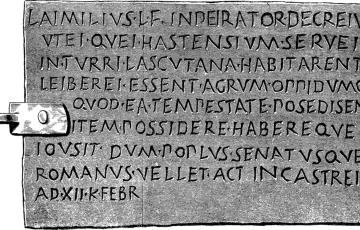 L·AIMILIVS·L·F·INPEIRATOR·DECREIV
VTEI·QVEI·HASTENSIVM·SERVEI
IN·TVRRI·LASCVTANA·HABITARENT
LEIBEREI·ESSENT·AGRVM·OPPIDVMQ
QVOD·EA·TEMPESTATE·POSEDISEN
ITEM·POSSIDERE·HABEREQVE
IOVSIT·DVM·POPLVS·SENATVSQVE
ROMANVS·VELLET·ACT·IN·CASTREI
A·D·XII·K·FEBR